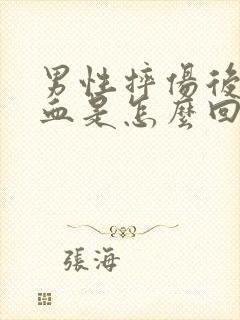 男性摔傷後
血是怎麼回
張海